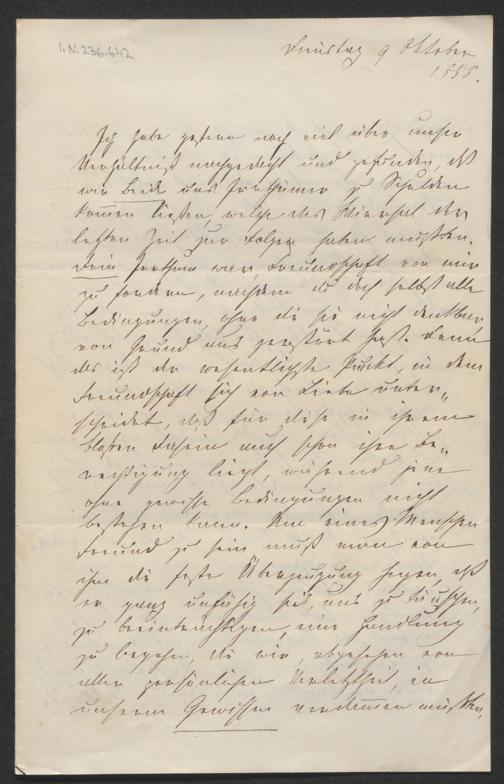 I.N. 236.642
Dienstag 9 Oktober
1855.
Ich habe gestern noch viel über unser
Verhältniß nachgedacht und gefunden, daß
wir Beide uns Irrthümer zu Schulden
kommen ließen, welche das Wirrsal der
letzten Zeit zur Folge haben mußten.
Dein Irrthum war, Freundschaft von mir
zu fordern, nachdem du doch selbst alle
Bedingungen, ohne die sie nicht denkbar,
von Grund aus zerstört hast. Denn
das ist der wesentlichste Punkt, in dem
Freundschaft sich von Liebe unter-
scheidet, daß für diese in ihrem
bloßen Dasein auch schon ihre Be-
rechtigung liegt, während jene
ohne gewisse Bedingungen nicht
bestehen kann. Um eines Menschen
Freund zu sein muß man von
ihm die feste Überzeugung hegen, daß
er ganz unfähig sei, uns zu täuschen,
zu beeinträchtigen, eine Handlung
zu begehen, die wir, abgesehen von
aller persönlichen Verletztheit, in
unserm Gewissen verdammen müßten,